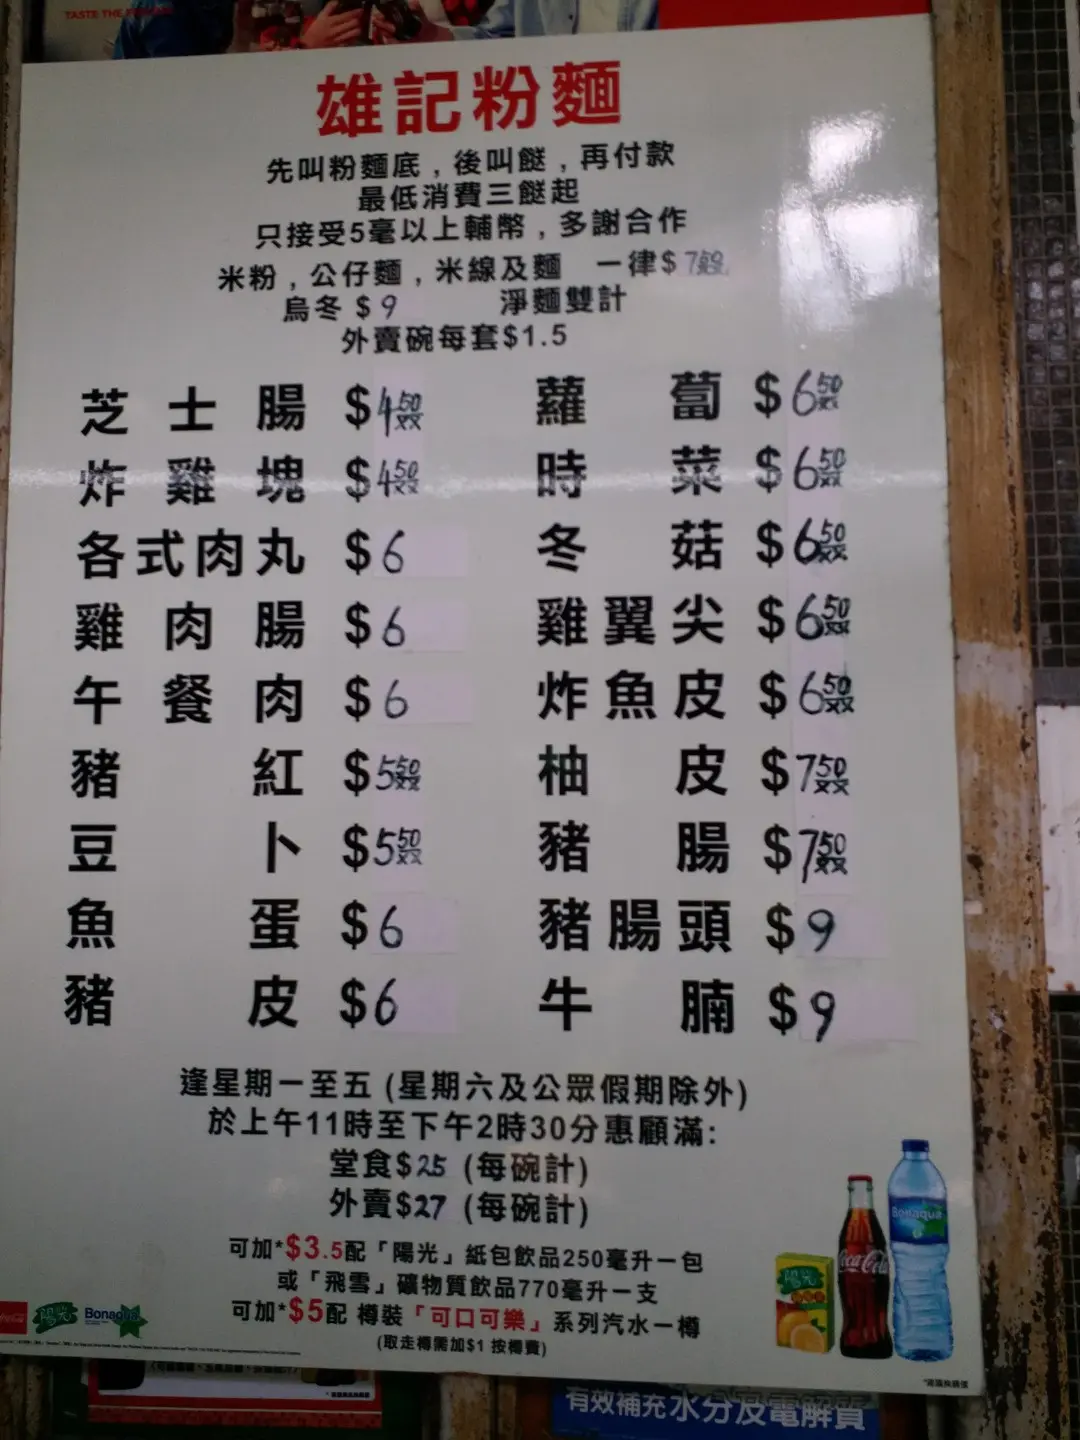 TASTE THE F
雄記粉麵
先叫粉麵底，後叫餸，再付款
最低消費三餸起
只接受5毫以上輔幣，多謝合作
米粉，公仔麵，米線及麵 一律$7
烏冬 $9 淨麵雙計
外賣碗每套$1.5
芝士腸 $4.50 蘿蔔 $6.50
炸雞塊 $4.50 時菜 $6.50
各式肉丸 $6 冬菇 $6.50
雞肉腸 $6 雞翼尖 $6.50
午餐肉 $6 炸魚皮 $6.50
豬紅 $5.50 柚皮 $7.50
豆卜 $5.50 豬腸 $7.50
魚蛋 $6 豬腸頭 $9
豬皮 $6 牛腩 $9
逢星期一至五 (星期六及公眾假期除外)
於上午11時至下午2時30分惠顧滿:
堂食$25 (每碗計)
外賣$27 (每碗計)
可加*$3.5配「陽光」紙包飲品250毫升一包
或「飛雪」礦物質飲品770毫升一支
可加*$5配 樽裝「可口可樂」系列汽水一樽
(取走樽需加$1 按樽費)
Bonaqua
Coca-Cola
陽光
陽光
Bonaqua
有效補充水分及電解質